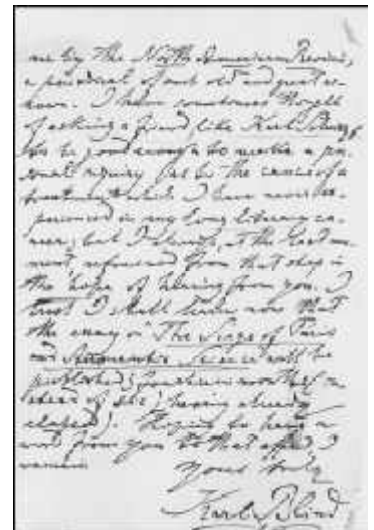 me by the North American Review,
a periodical of such old and great re-
nown. I have sometimes thought
of asking a friend like Karl Schurz
to be good enough to make a per-
sonal inquiry as to the causes of a
treatment which I have never ex-
perienced in my long literary ca-
reer; but I always, at the last mo-
ment, refrained from that step in
the hope of hearing from you. I
trust I shall learn now that
the essay on The Siege of Paris
and Science will be
published; (
having already
elapsed). Hoping to have a
word from you to that effect I
remain
Yours truly
Karl Blind